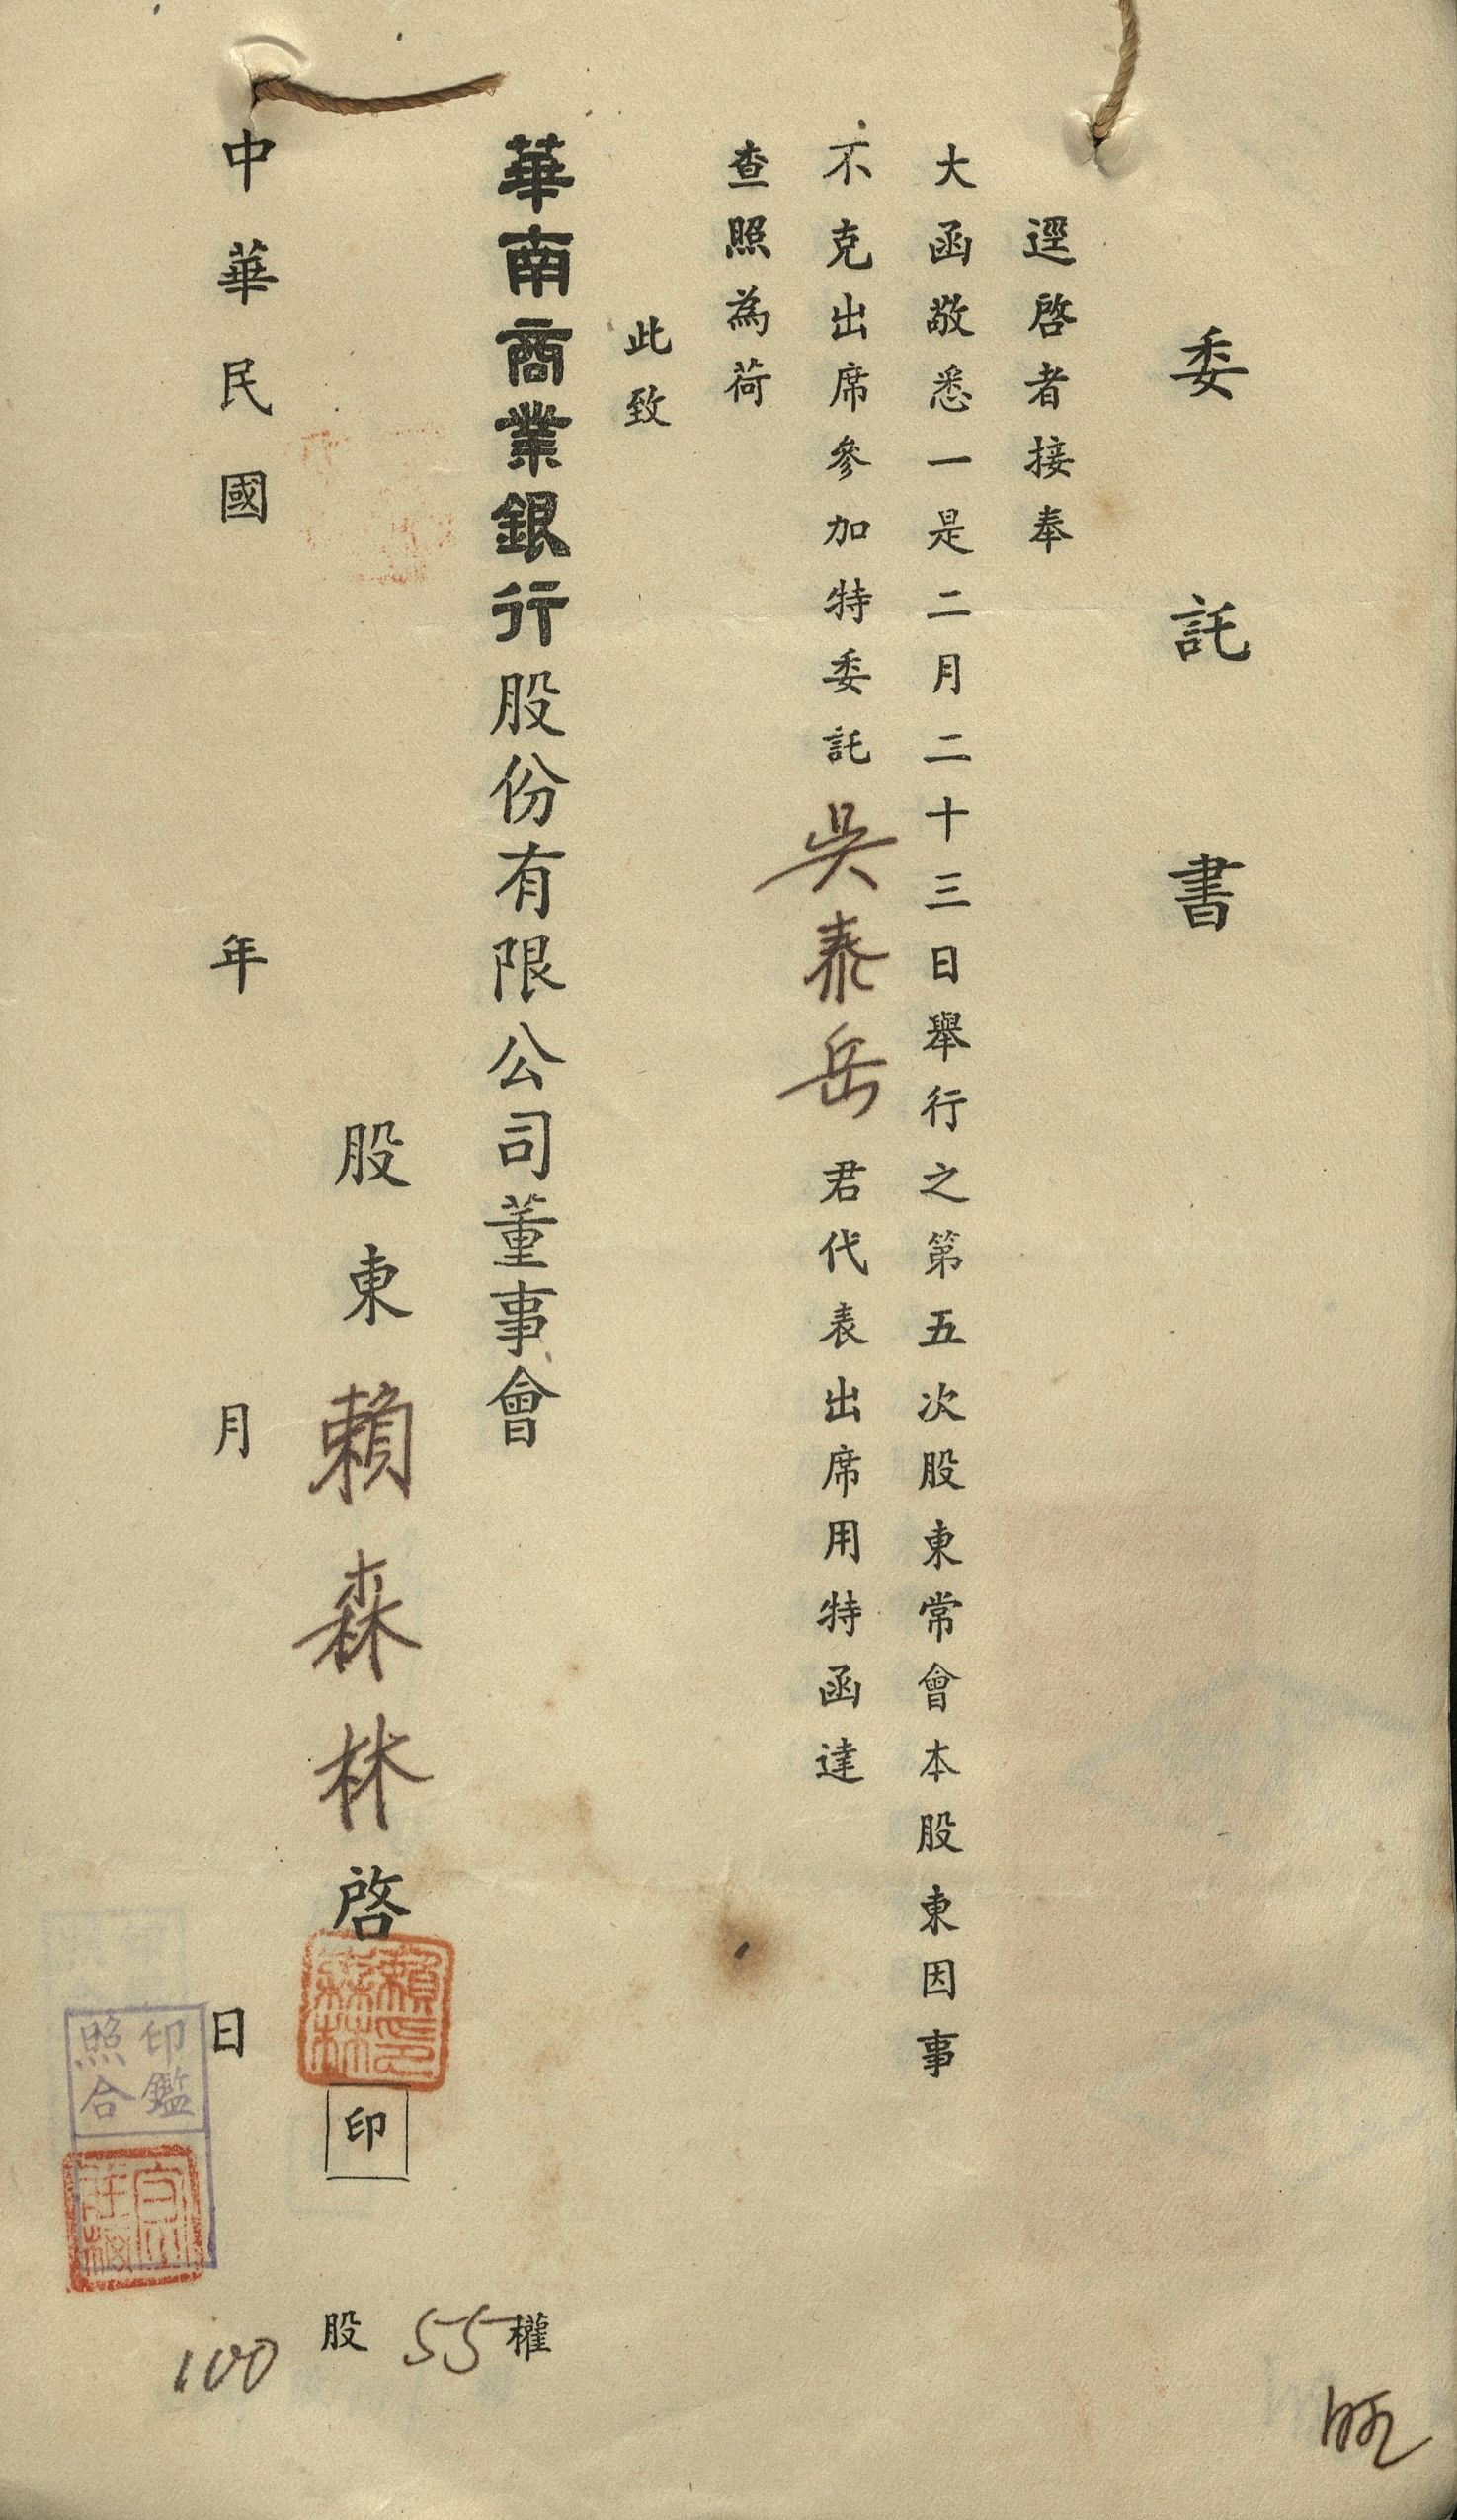 委託書
逕啓者接奉
大函敬悉一是二月二十三日舉行之第五次股東常會本股東因事
不克出席參加特委託吳泰岳君代表出席用特函達
查照為荷
此致
華南商業銀行股份有限公司董事會
股東賴森林啓
賴森林印
印
中華民國年月日
印鑑照合
權55
股100